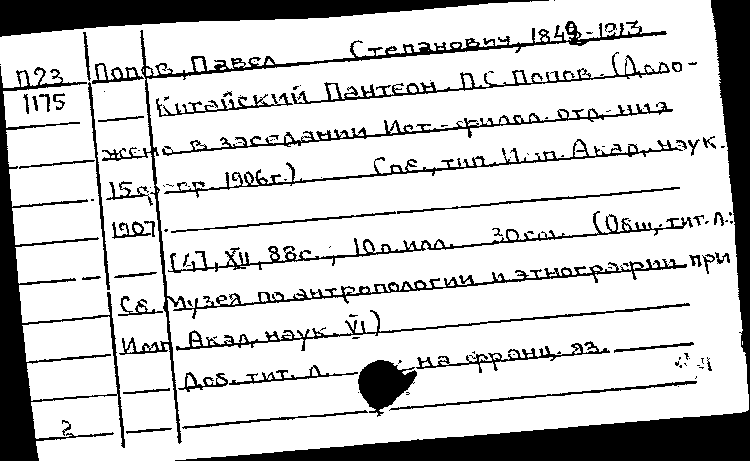 П23 Попов, Павел Степанович, 1842-1913
1175 Китайский Пантеон. П.С. Попов. (Доло-
жено в заседании Ист.-филол. отд-ния
15 февр. 1906г.). Спб., тип. Имп. Акад. наук.
1907
[4], XII, 88с.; 10 л. илл. 30 см. (Общ. тит. л.:
Сб. Музея по антропологии и этнографии при
Имп. Акад. наук. VI)
Доб. тит. л. на франц. яз.
2